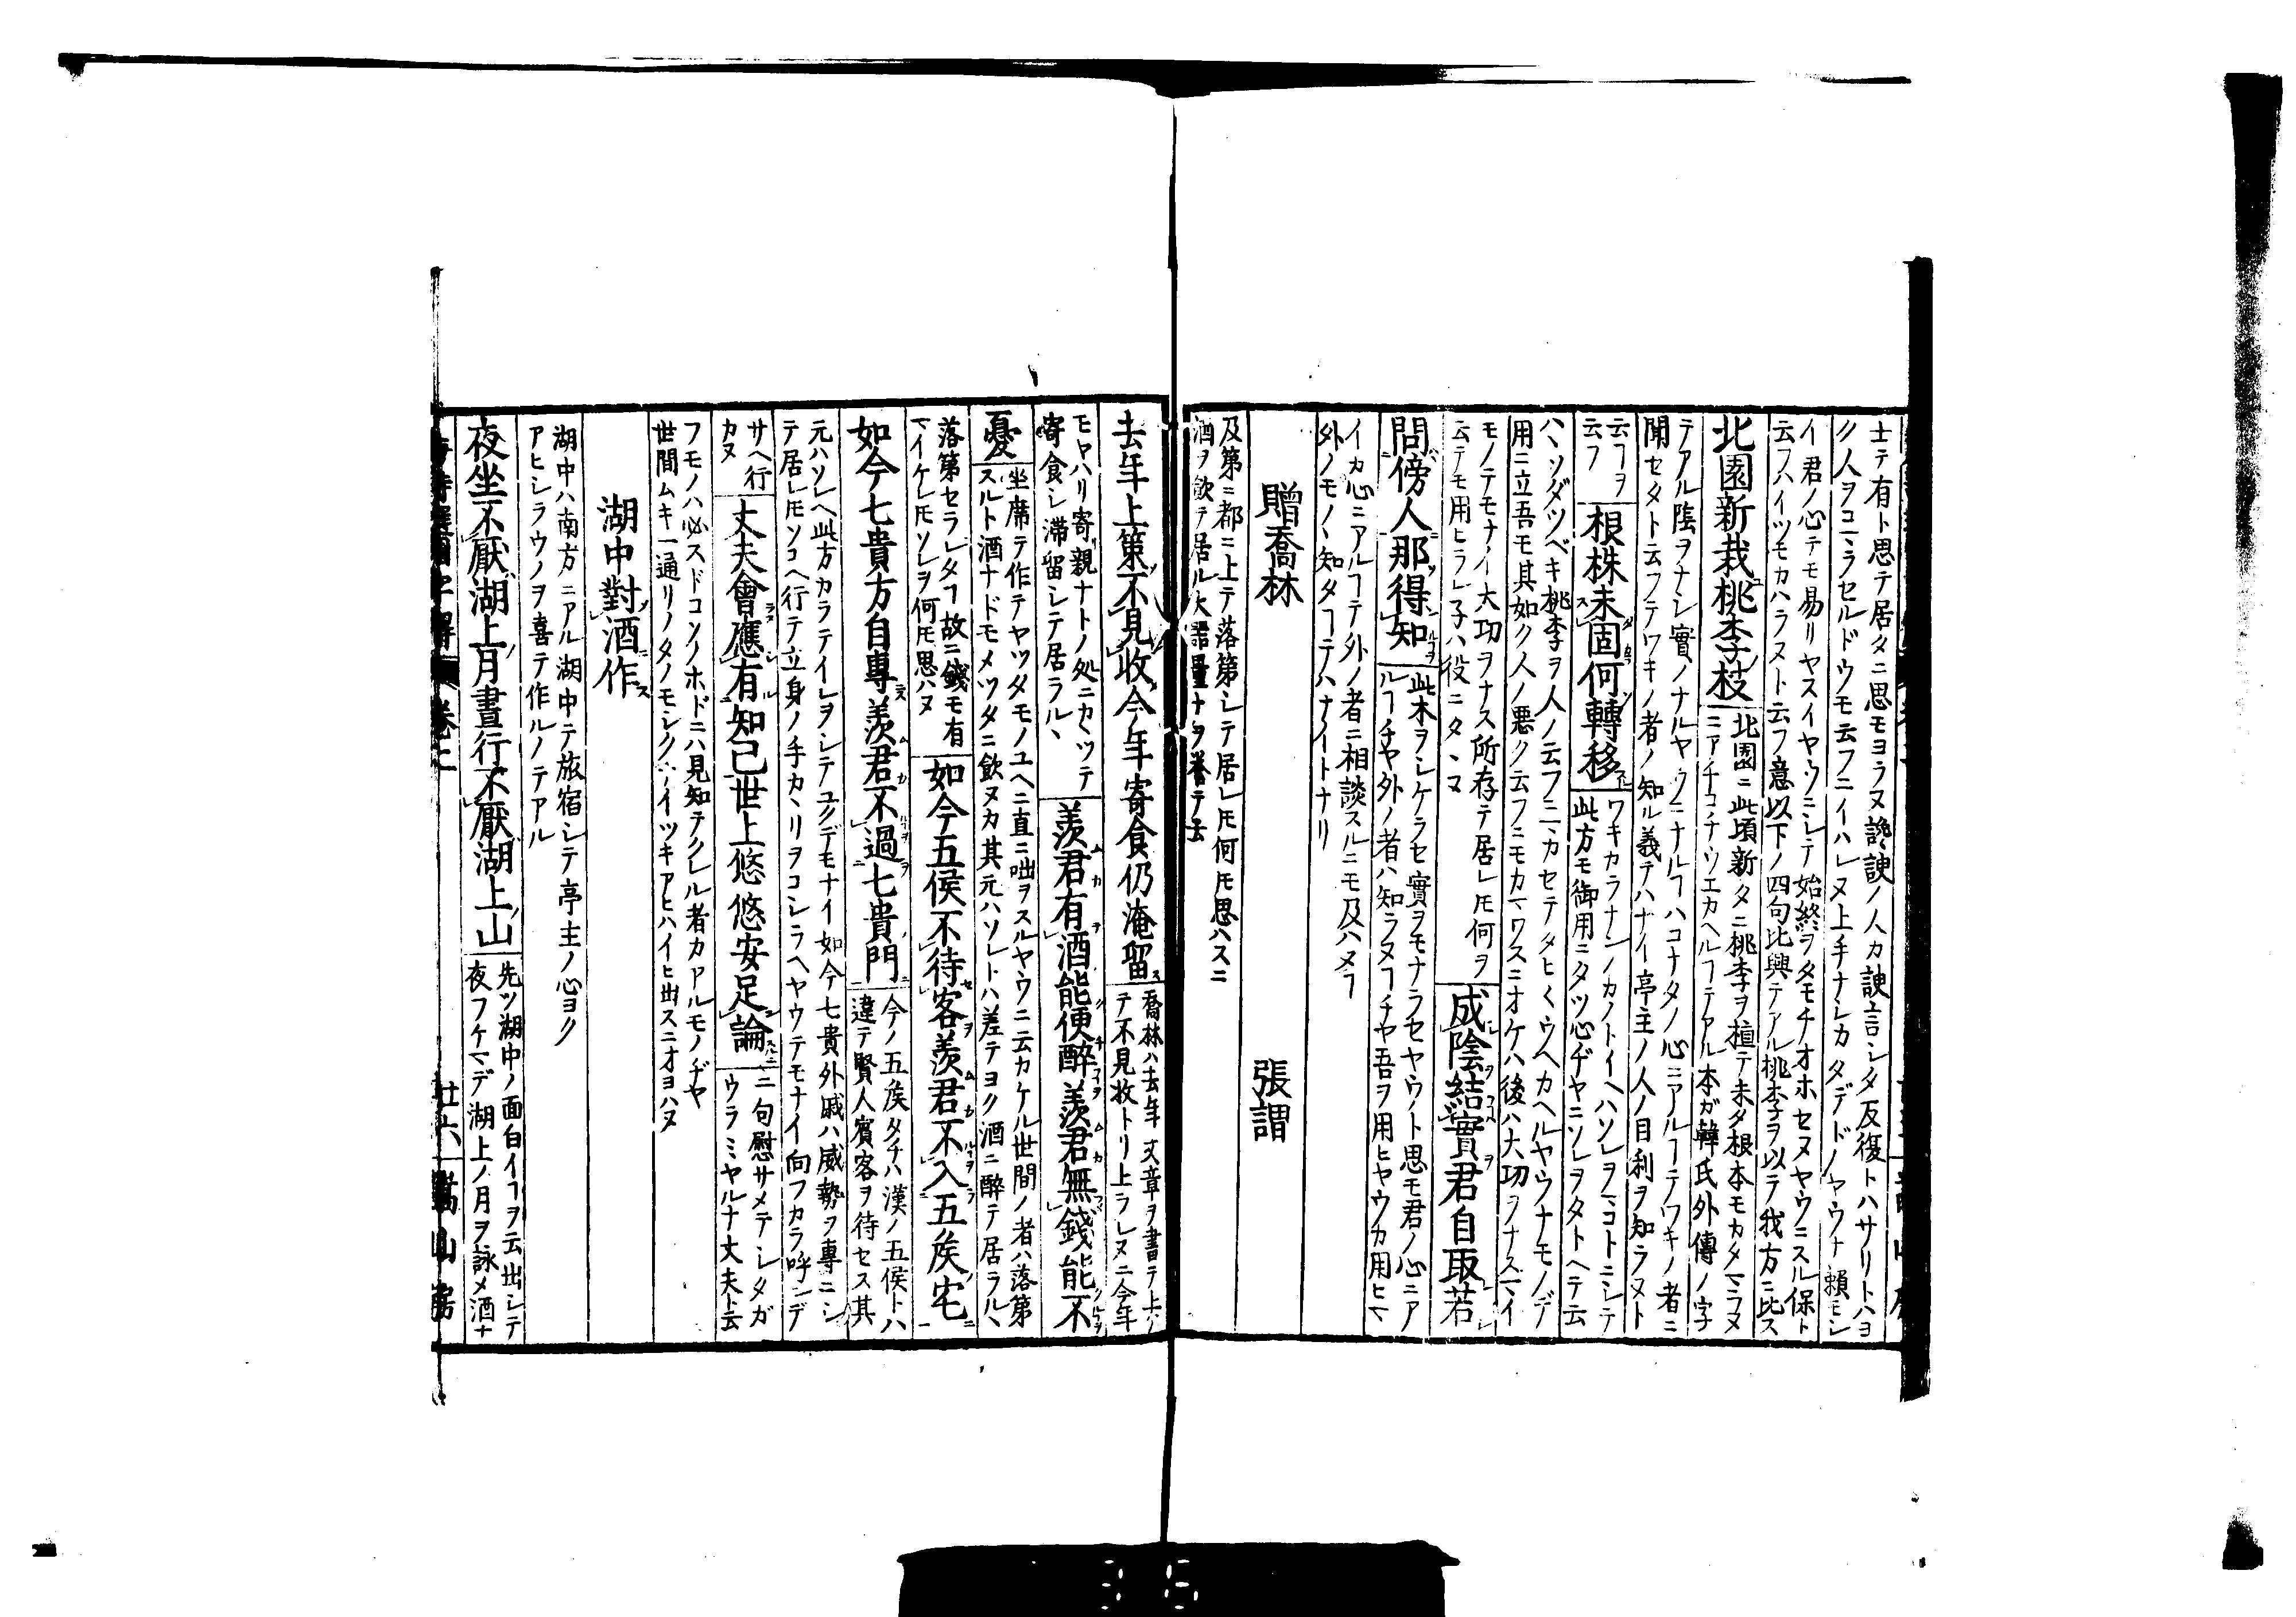 士テ有ト思テ居タニ思モヨラヌ讒諛ノ人カ諛言シタ反復トハサリトハヨ
ク人ヲコヽラセルドウモ云フニイハレヌ上手ナシカタデドノヤウナ頼モシ
イ君ノ心テモ易リヤスイヤウニシテ始終ヲタモチオホセヌヤウニスル保ト
云フハイツモカハラヌト云フ意以下ノ四句比興テアル桃李ヲ以テ我方ニ比ス
北園新栽桃李枝
北園ニ此頃新タニ桃李ヲ植テ未タ根本モカタマラヌ
ニアチコチウエカヘルヿテアル本ガ韓氏外傳ノ字
テアル陰ヲナシ實ノナルヤウニナルヿハコナタノ心ニアルヿテワキノ者ニ
聞セタト云フテワキノ者ノ知ル義テハナイ亭主ノ人ノ目利ヲ知ラヌト
云フヿヲ
云フ
根株未固何轉移
ワキカラナンノカノトイヘハソレヲマコトニシテ
此方モ御用ニタツ心ヂヤニソレヲタトヘテ云
ハヽソダツベキ桃李ヲ人ノ云フニマカセテタヒ〱ウヘカヘルヤウナモノデ
用ニ立吾モ其如ク人ノ悪ク云フニモカマワスニオケハ後ハ大功ヲナスマイ
モノテモナイ大功ヲナス所存テ居レ𪜈何ヲ
云テモ用ヒラレ子ハ役ニタヽヌ
成陰結實君自取若
問傍人那得知
此木ヲシケラセ實ヲモナラセヤウト思モ君ノ心ニア
ルヿチヤ外ノ者ハ知ラヌヿチヤ吾ヲ用ヒヤウカ用ヒマ
イカ心ニアルヿテ外ノ者ニ相談スルニモ及ハヌヿ
外ノモノヽ知タヿテハナイトナリ
贈喬林　張謂
及第ニ都ニ上テ落第シテ居レ𪜈何𪜈思ハスニ
酒ヲ飲テ居ル大器量ナヲ誉テ云
去年上策不見收今年寄食仍淹留
喬林ハ去年文章ヲ書テ上
テ不見收トリ上ラレヌニ今年
モヤハリ寄親ナトノ処ニカヽツテ
寄食シ滞留シテ居ラルヽ
羨君有酒能便醉羨君無錢能不
憂
坐席テ作テヤツタモノユヘニ直ニ咄ヲスルヤウニ云カケル世間ノ者ハ落第
スルト酒ナドモメツタニ飲ヌカ其元ハソレトハ差テヨク酒ニ醉テ居ラルヽ
落第セラレタヿ故ニ錢モ有
マイケレ𪜈ソレヲ何𪜈思ハヌ
如今五侯不待客羨君不入五矦宅
如今七貴方自專羨君不過七貴門
今ノ五矦タチハ漢ノ五侯トハ
違テ賢人賓客ヲ待セス其
元ハソレヘ此方カラテイレヲシテユクデモナイ如今七貴外戚ハ威勢ヲ專ニシ
テ居レ𪜈ソコヘ行テ立身ノ手カヽリヲコシラヘヤウテモナイ向フカラ呼ンデ
サヘ行
カヌ
丈夫會應有知己世上悠悠安足論
二句慰サメテシタガ
ウラミヤルナ丈夫ト云
フモノハ必スドコソノホドニハ見知テクレル者カアルモノヂヤ
世間ムキ一通リノタノモシクハイツキアヒハイヒ出スニオヨハヌ
湖中對酒作
湖中ハ南方ニアル湖中テ旅宿シテ亭主ノ心ヨク
アヒシラウノヲ喜テ作ルノテアル
夜坐不厭湖上月晝行不厭湖上山
先ツ湖中ノ面白イヿヲ云出シテ
夜フケマデ湖上ノ月ヲ詠メ酒ナ
卷二　廿六